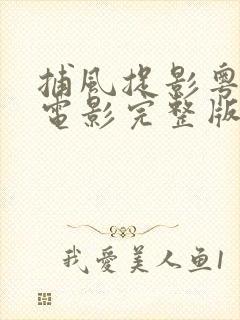 捕風捉影粵
電影完整版
我愛美人鱼1